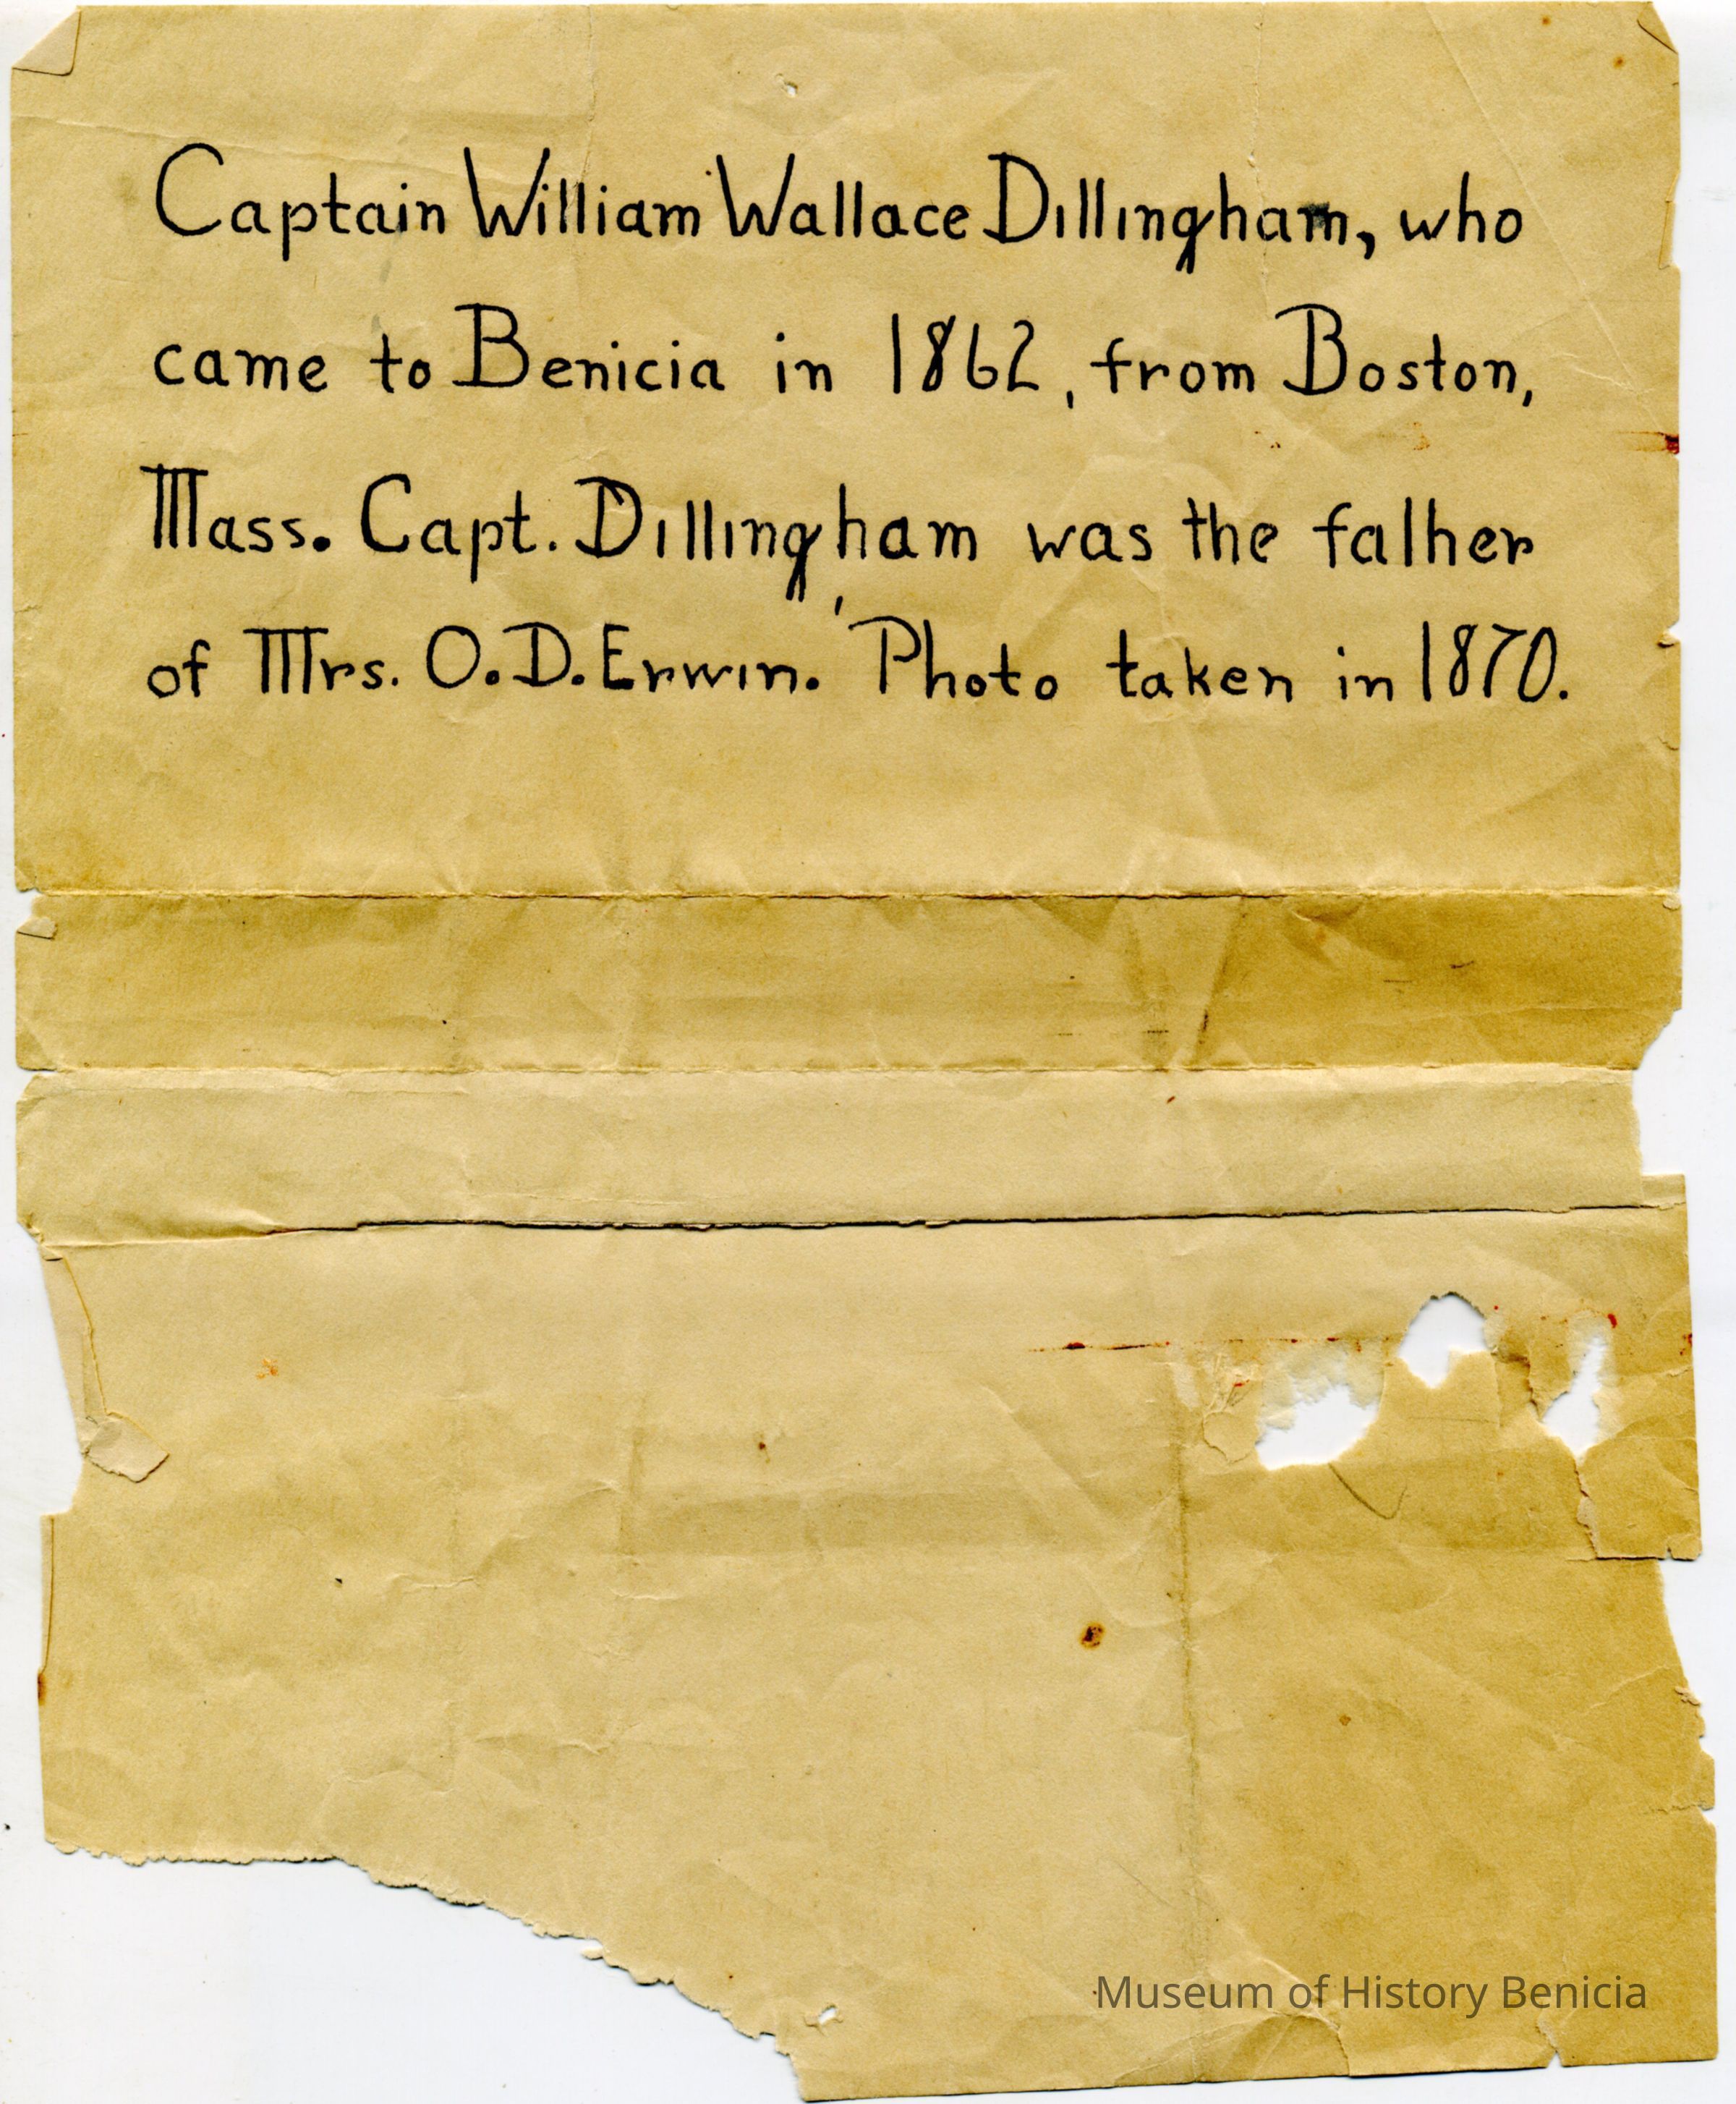 Captain William Wallace Dillingham, who
came to Benicia in 1862, from Boston,
Mass. Capt. Dillingham was the father
of Mrs. O. D. Erwin. Photo taken in 1870.
Museum of History Benicia